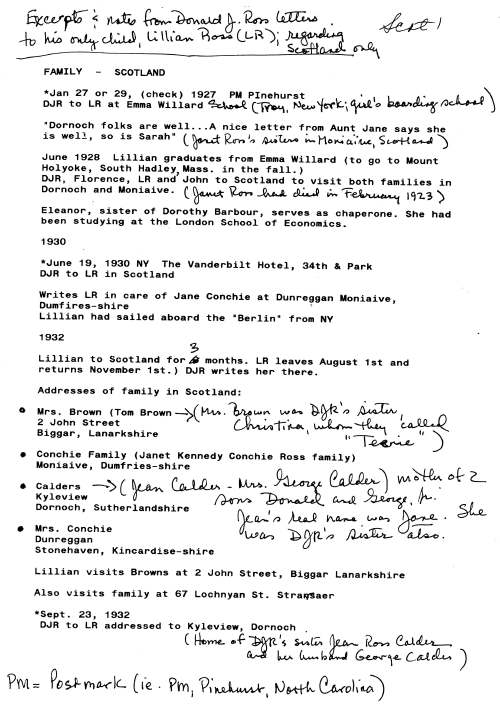 Excerpts & notes from Donald J. Ross letters
to his only child, Lillian Ross (LR); regarding
Scotland only
Scot 1
FAMILY - SCOTLAND
*Jan 27 or 29, (check) 1927 PM PInehurst
DJR to LR at Emma Willard School (Troy, New York; girl's boarding school)
"Dornoch folks are well...A nice letter from Aunt Jane says she
is well, so is Sarah" (Janet Ross's sisters in Moniaive, Scotland)
June 1928 Lillian graduates from Emma Willard (to go to Mount
Holyoke, South Hadley, Mass. in the fall.)
DJR, Florence, LR and John to Scotland to visit both families in
Dornoch and Moniaive. (Janet Ross had died in February 1923)
Eleanor, sister of Dorothy Barbour, serves as chaperone. She had
been studying at the London School of Economics.
1930
*June 19, 1930 NY The Vanderbilt Hotel, 34th & Park
DJR to LR in Scotland
Writes LR in care of Jane Conchie at Dunreggan Moniaive,
Dumfires-shire
Lillian had sailed aboard the "Berlin" from NY
1932
Lillian to Scotland for 3 months. LR leaves August 1st and
returns November 1st.) DJR writes her there.
Addresses of family in Scotland:
Mrs. Brown (Tom Brown → (Mrs. Brown was DJR's sister,
2 John Street Christina, whom they called
Biggar, Lanarkshire "Teenie")
Conchie Family (Janet Kennedy Conchie Ross family)
Moniaive, Dumfries-shire
Calders → (Jean Calder - Mrs. George Calder) mother of 2
Kyleview sons Donald and George, Jr.
Dornoch, Sutherlandshire Jean's real name was Jane. She
was DJR's sister also.
Mrs. Conchie
Dunreggan
Stonehaven, Kincardise-shire
Lillian visits Browns at 2 John Street, Biggar Lanarkshire
Also visits family at 67 Lochnyan St. Stranraer
*Sept. 23, 1932
DJR to LR addressed to Kyleview, Dornoch
(Home of DJR's sister Jean Ross Calder
and her husband George Calder)
PM = Postmark (ie. PM, Pinehurst, North Carolina)